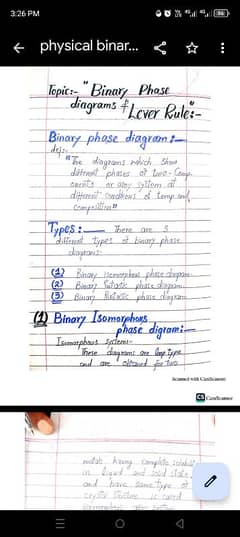 3:26 PM
physical binar...
Topic:- "Binary Phase
diagrams & Lever Rule":-
Binary phase diagram:-
def:-
"The diagrams which show
different phases of two-Comp-
onents or any system at
different conditions of temp and
composition"
Types:- There are 3
different types of binary phase
diagrams:-
(1) Binary Isomorphous phase diagram
(2) Binary Eutectic phase diagram
(3) Binary phase diagram
(1) Binary Isomorphous
phase digram:-
Isomorphous System:-
These diagrams are loop type
and are obtained for two
Scanned with CamScanner
CS CamScanner
metals having complete
in liquid and solid state
and have same type of